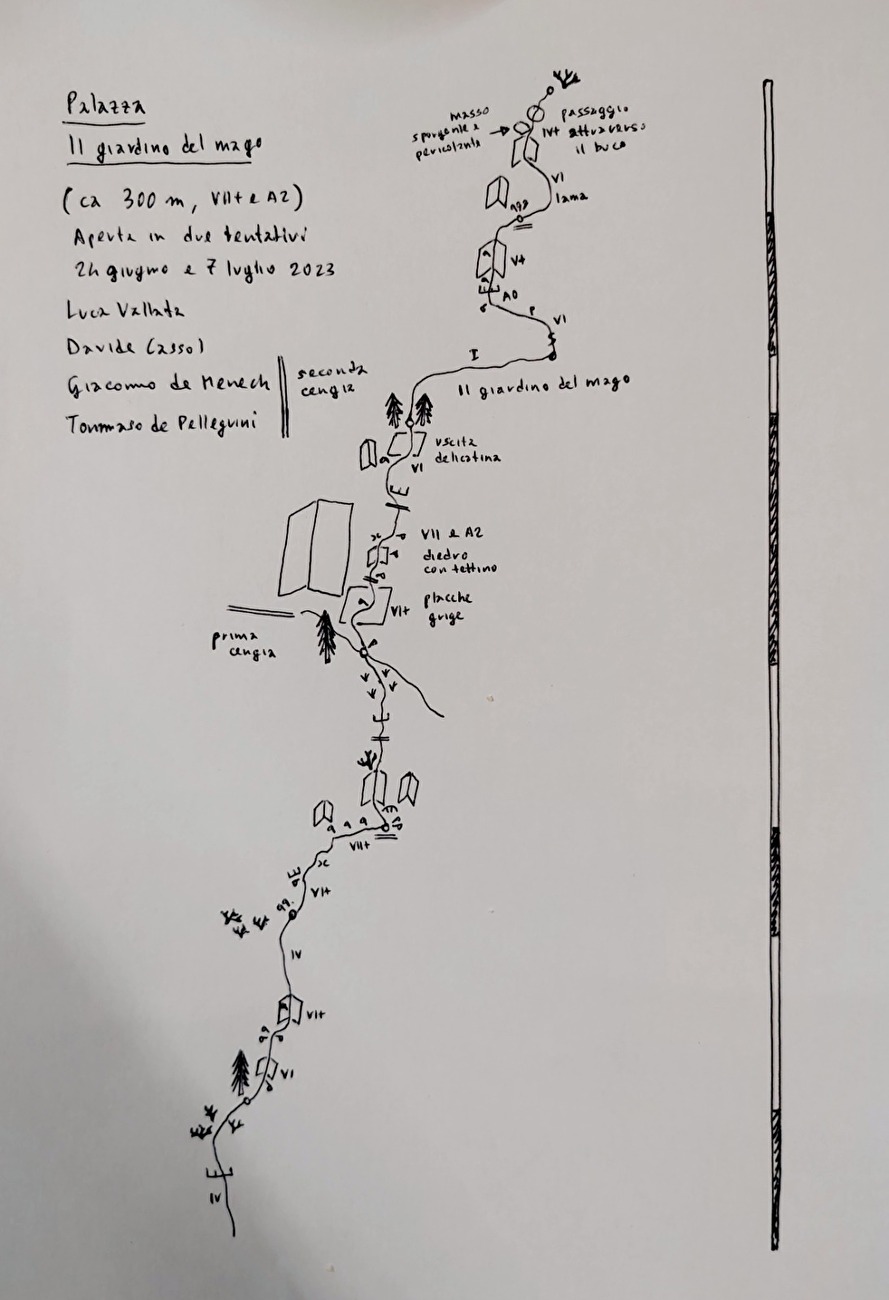 Palazza
Il giardino del mago
(ca 300 m, VII+ e A2)
Aperta in due tentativi
24 giugno e 7 luglio 2023
Luca Vallata
Davide Cassol
Giacomo de Menech
Tommaso de Pellegrini
seconda
cengia
masso
sporgente e
pericolante
passaggio
IV+ attraverso
il buco
VI
lama
V+
A0
VI
I
Il giardino del mago
uscita
delicatina
VI
VII e A2
diedro
con tettino
VI+
placche
grige
prima
cengia
VII+
VI+
IV
VI+
VI
IV